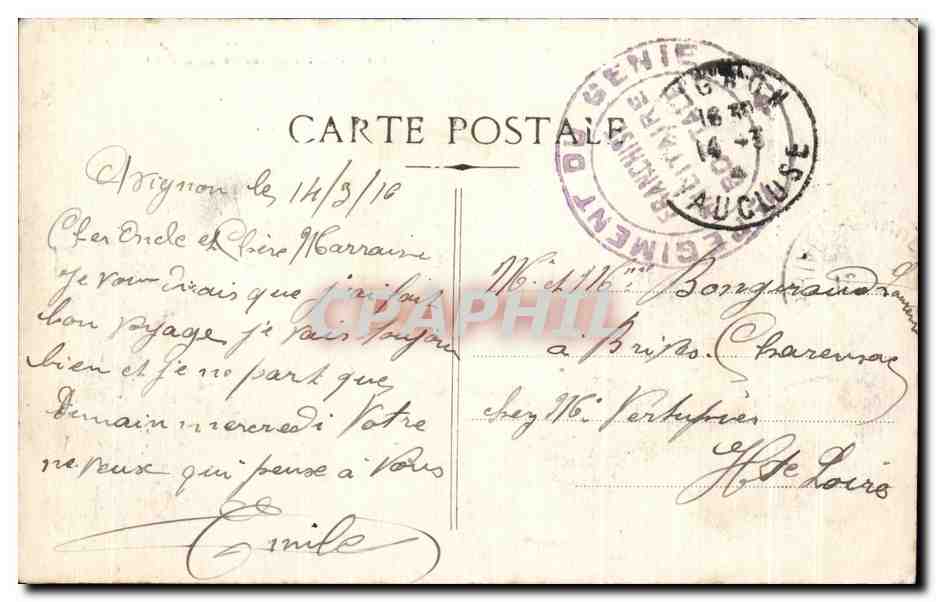 CARTE POSTALE
REGIMENT DU GENIE
FRANCHISE
MILITAIRE
POSTALE
16 30
14 -3
VAUCLUSE
Avignon le, 14/3/16
Cher Oncle et Chère Marraine
Je vous dirais que j'ai fait
bon voyage je vais toujou
bien et je ne part que
Demain mercredi Votre
neveux qui pense à Vous
Emile
Mr et Mme Bongiraud
à Brives-Charensac
chez Mr
Hte Loire
CPAPHIL